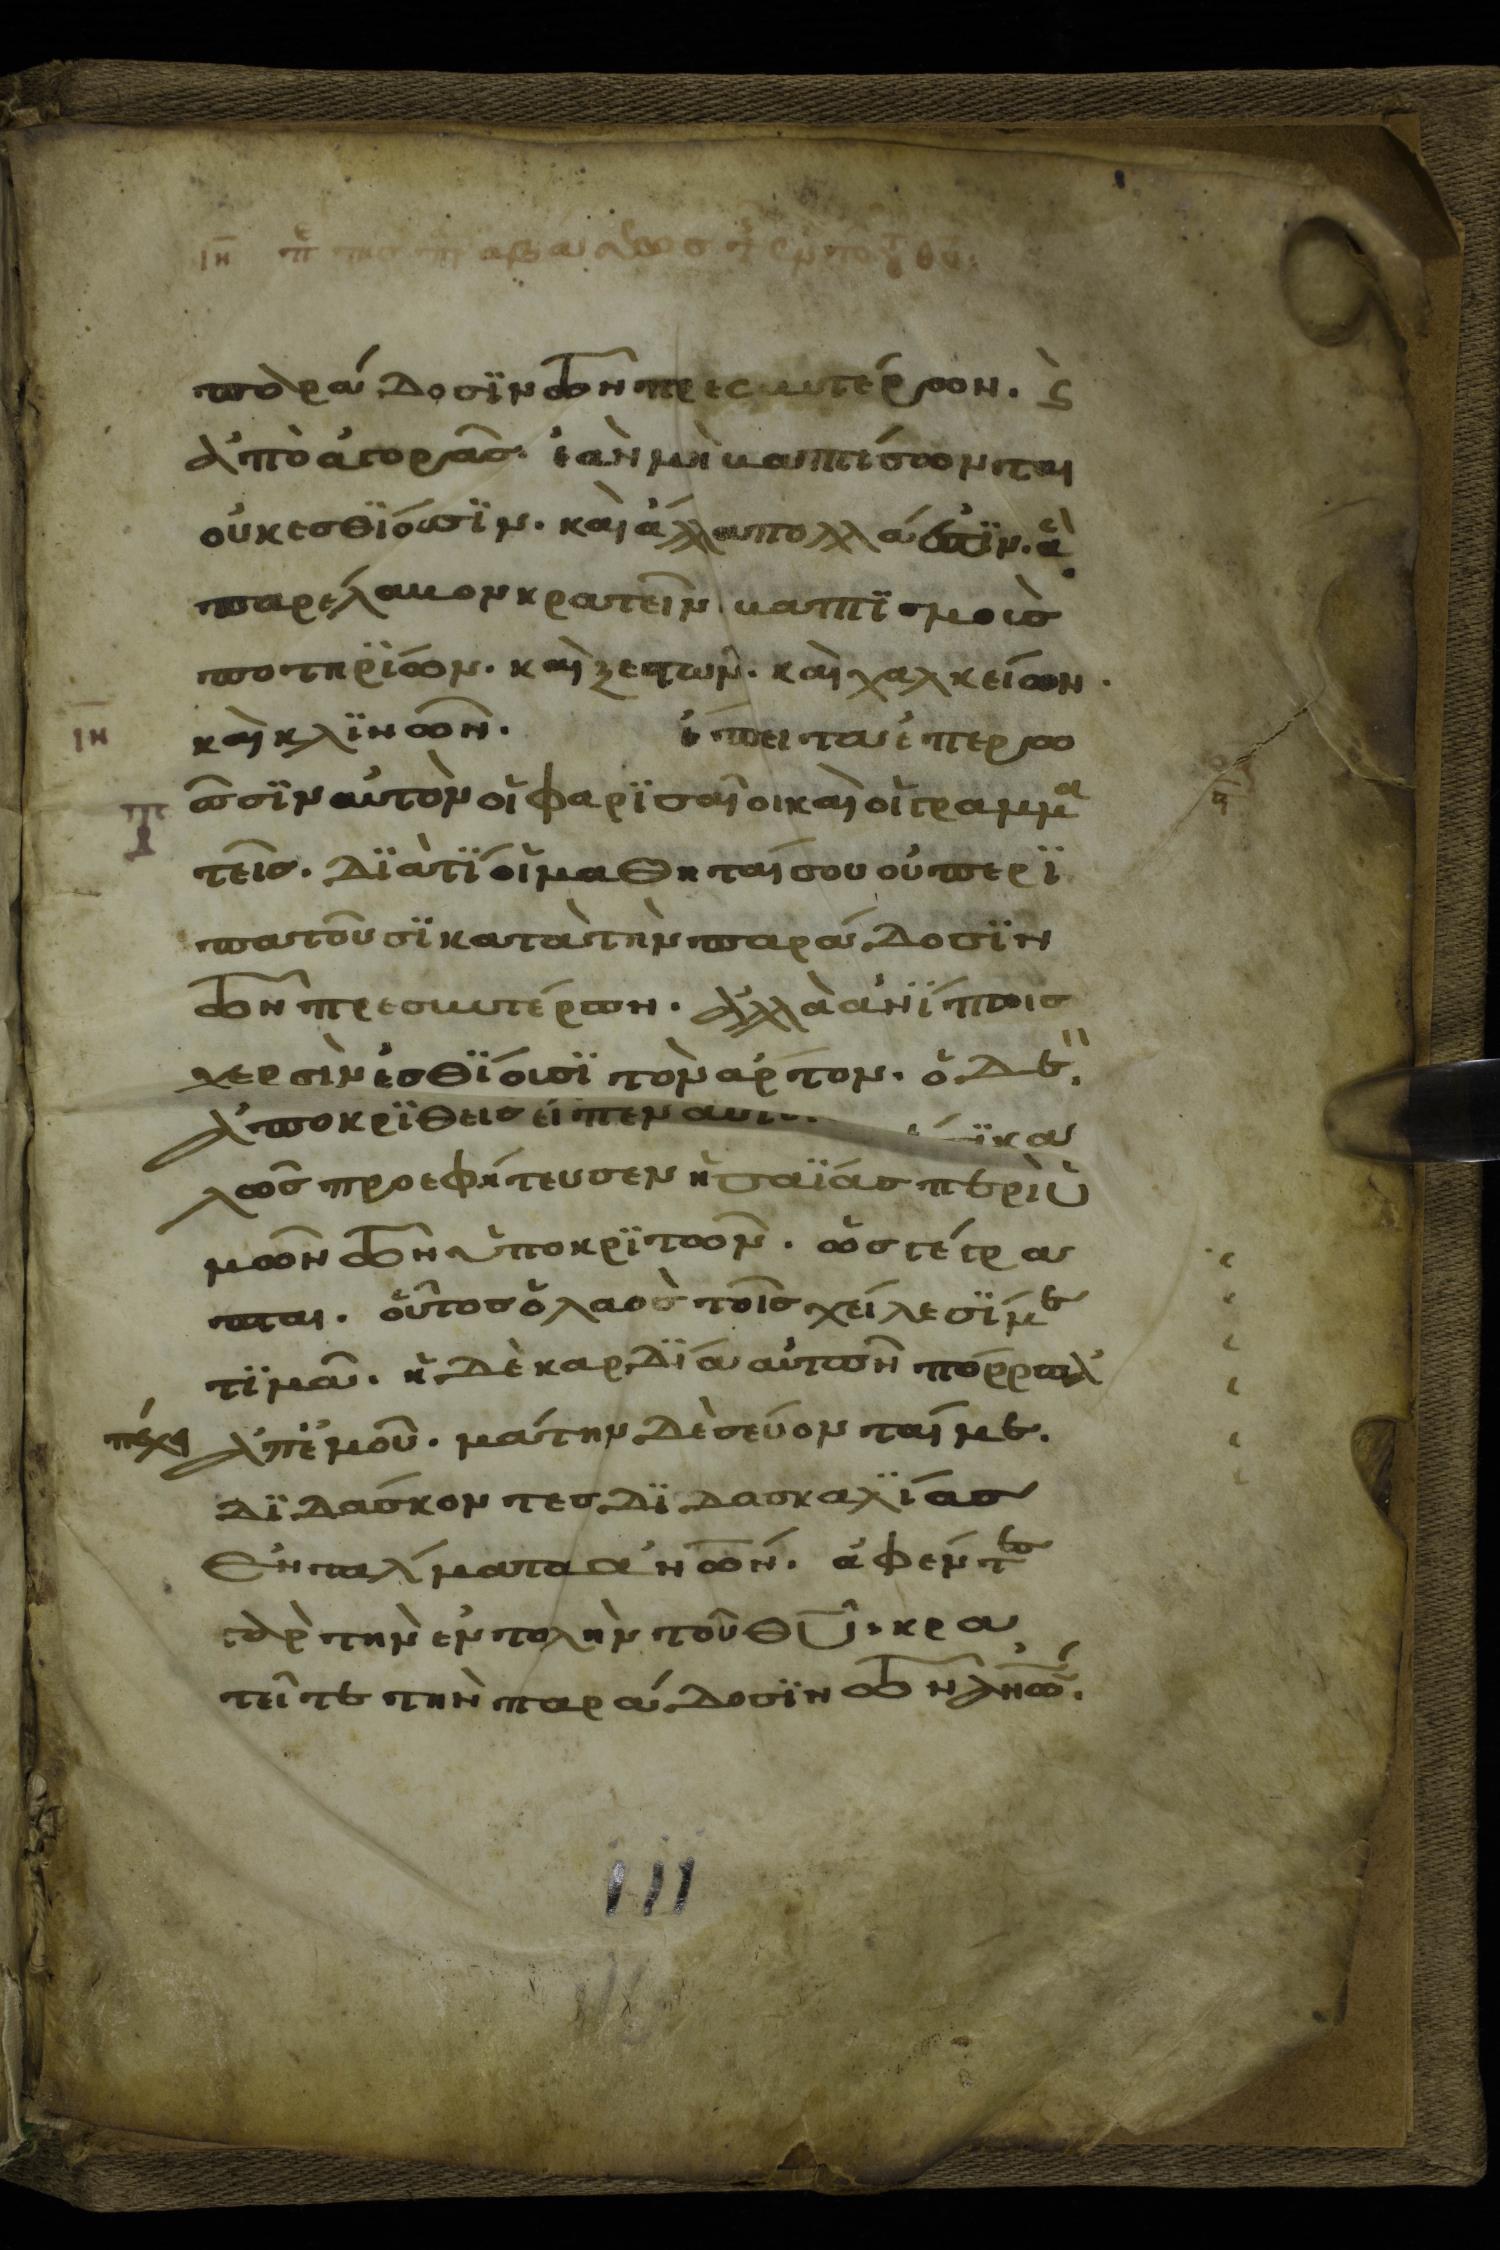 ιη περὶ τῆς παραβάσεως τῆς ἐντολῆς τοῦ θῦ:
παράδοσϊν τῶν πρεσβυτέρων. ϛ
ἀπὸ ἀγορᾶς. ἐὰν μὴ βαπτίσωνται
οὐκ εσθΐουσϊν. καὶ ἄλλα πολλά ἐστϊν. ἃ
παρέλαβον κρατεῖν. βαπτϊσμοὺς
ποτηρΐων. καὶ ξεστῶν. καὶ χαλκείων.
ιη
καὶ κλϊνῶν. ἔπειτα ἐπερω
τῶσϊν αὐτὸν οἱ φαρϊσαῖοι καὶ οἱ γραμμα
τεῖς. Δϊατΐ οἱ μαθηταί σου οὐ περϊ
πατοῦσϊ κατὰ τὴν παράδοσϊν
τῶν πρεσβυτέρων. ἀλλὰ ἀνΐπτοις
χερσὶν ἐσθΐουσϊ τὸν αρτον. ὁ δὲ
ἀποκρϊθεις εἶπεν αυτοῖς ὅτϊ κα
λῶς προεφήτευσεν ἡσαΐας περὶ ὑ
μῶν τῶν ὑποκρϊτῶν. ὡς γέγρα
πται. οὗτος ὁ λαὸς τοῖς χείλεσΐ με
τϊμᾶ. ἡ δὲ καρδΐα αὐτῶν πόρρω ἀ
ἀπ' ἐμοῦ. μάτην δὲ σεύονταί με.
Δϊδάσκοντες δϊδασκαλΐας
ἐντάλματα ἀνῶν. ἀφέντες
γὰρ τὴν εντολὴν τοῦ θῦ. κρα
τεῖτε τὴν παράδοσϊν τῶν ἀνῶν.
111